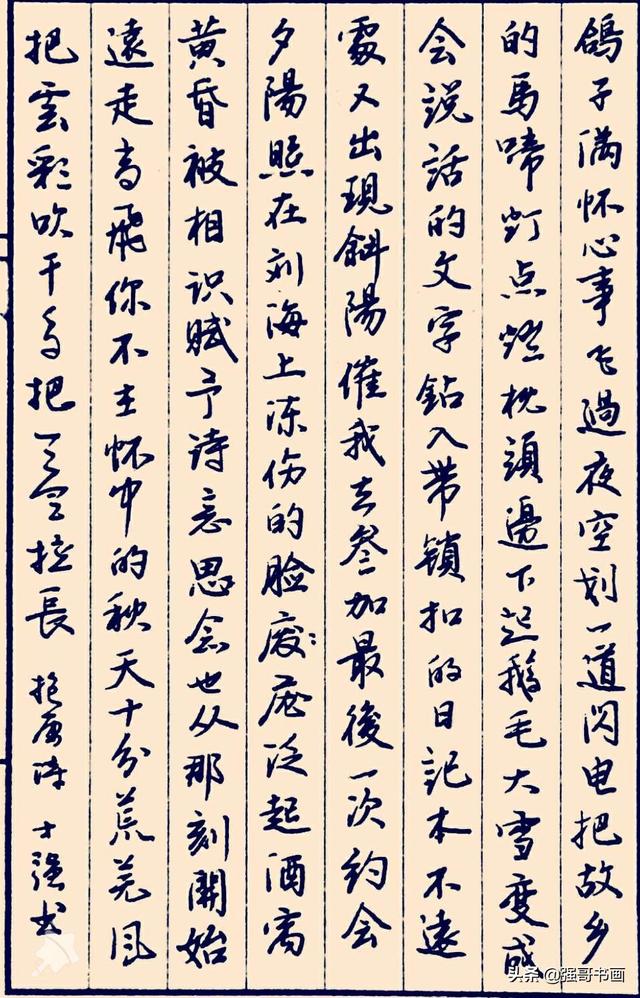 鸽子满怀心事飞過夜空划一道闪电把故乡
的馬啼灯点燃枕頭邊下起鹅毛大雪變成
会說話的文字鉆入带锁扣的日記本不遠
處又出現斜陽催我去叁加最後一次约会
夕陽照在刘海上冻伤的脸庞泛起酒窝
黄昏被相识赋予诗意思念也从那刻開始
遠走高飛你不在怀中的秋天十分荒芜風
把雲彩吹干把天空拉長 诗 士强书
头条 @强哥书画